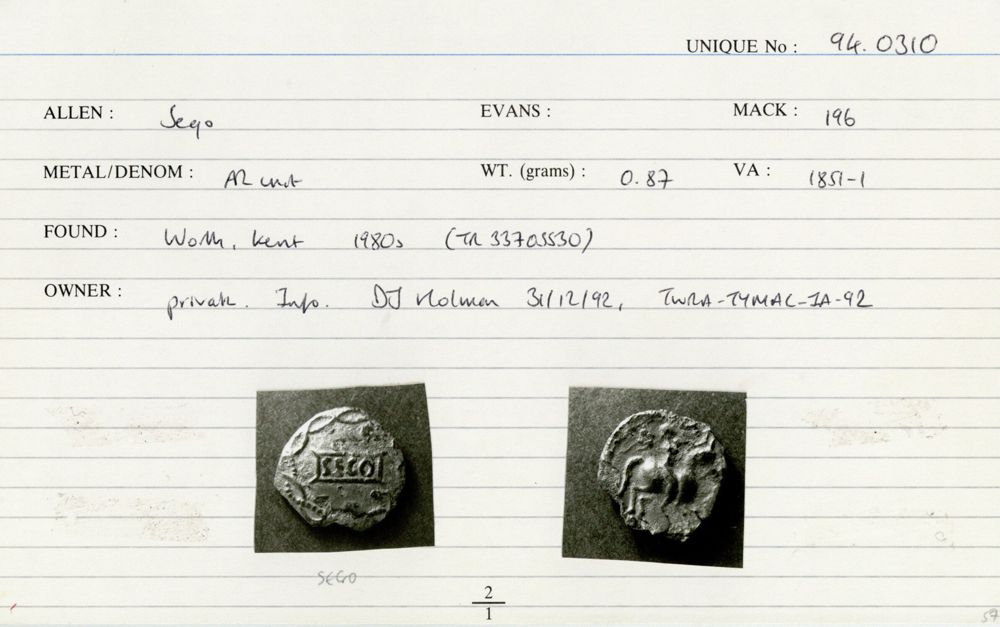 UNIQUE No : 94.0310
ALLEN : Sego EVANS : MACK : 196
METAL/DENOM : AR unit WT. (grams) : 0.87 VA : 1851-1
FOUND : Worth, Kent 1980s (TR 33705530)
OWNER : private. Info. DJ Holman 31/12/92, TWRA-TYMAC-IA-92
SEGO
SEGO
2
1
57